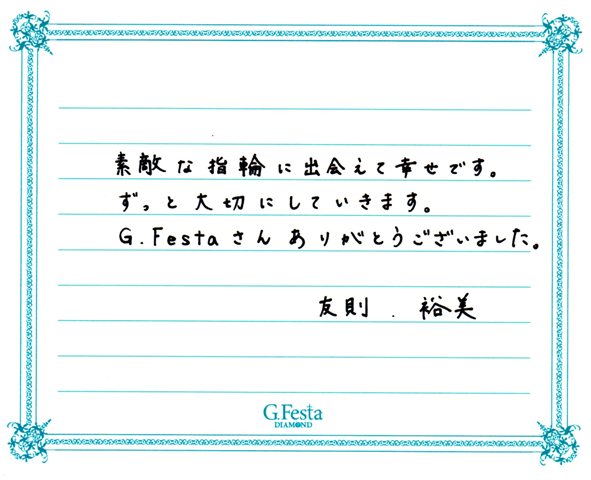 素敵な指輪に出会えて幸せです。
ずっと大切にしていきます。
G.Festaさんありがとうございました。
友則．裕美
G.Festa
DIAMOND